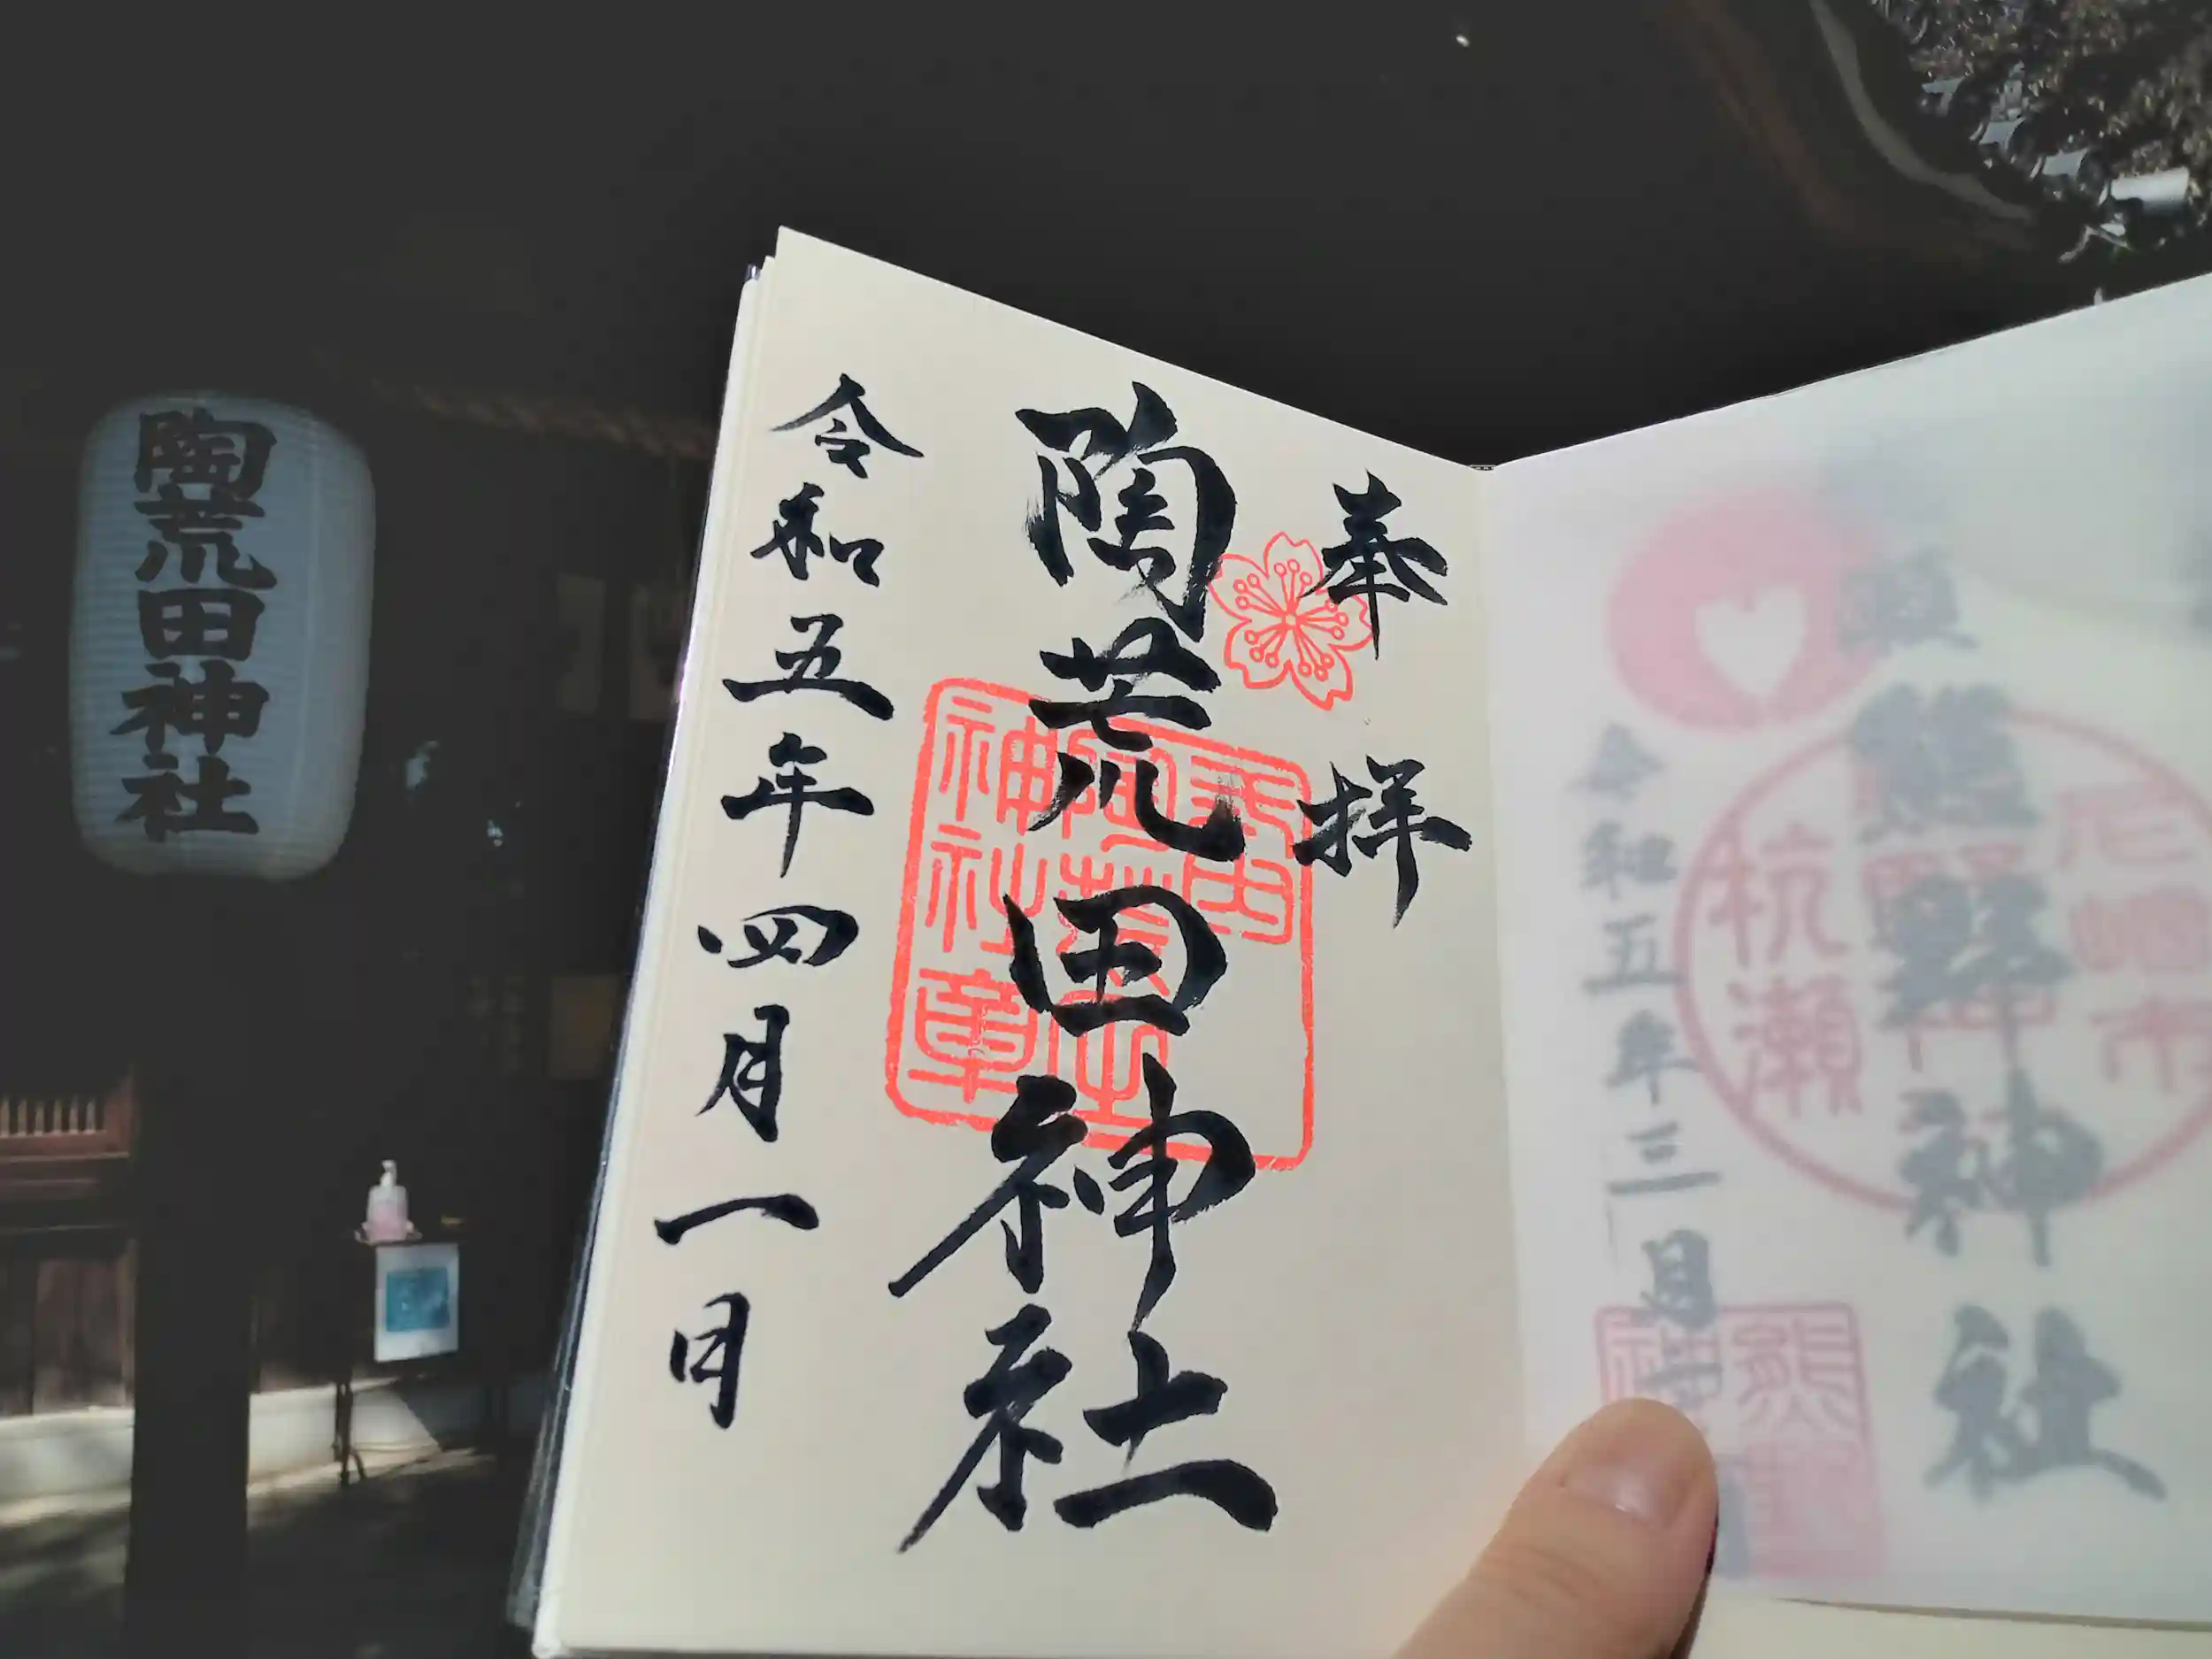 奉拝
陶荒田神社
令和五年四月一日
陶荒田神社
熊野神社
令和五年三月
尼崎市
杭瀬
神社章